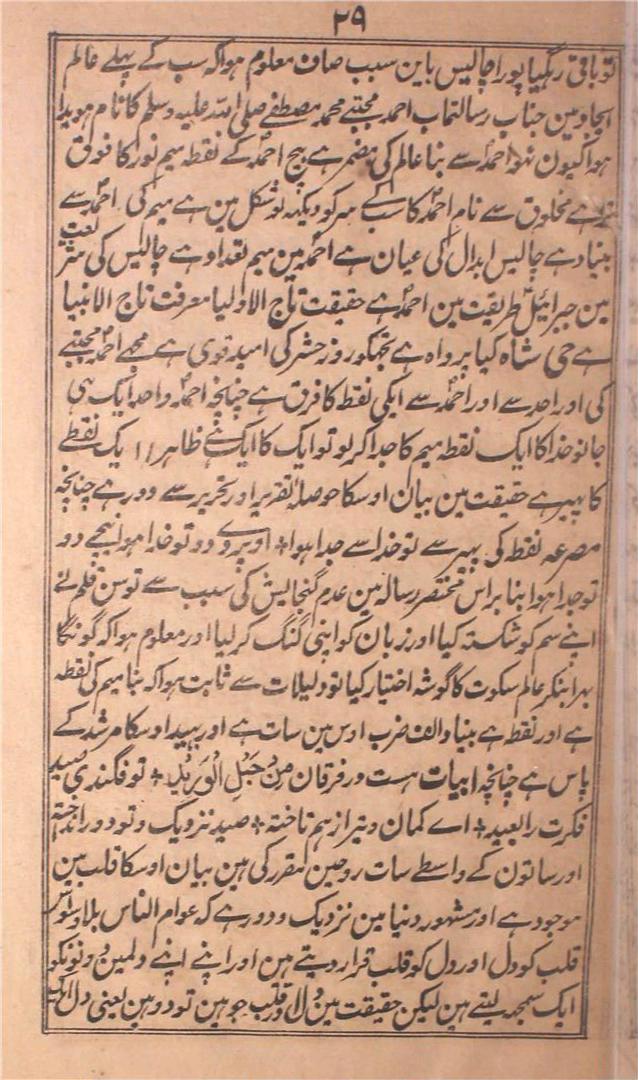 ۲۹
تو باقی رہگیا پورا چالیس باین سبب صاف معلوم ہوا کہ سب کے پہلے عالم
ایجاد مین جناب رسالتماب احمد مجتبے محمد مصطفے صلی اللہ علیہ وسلم کا نام ہویدا
ہوا کیون نہو احمدؐ سے بنا عالم کی مضمر ہے بیچ احمدؐ کے نقطہ میم نور کا فوق
ہے مخلوق سے نام احمدؐ کا سب کے سر کو دیکہہ تو شکل مین ہے میم کی احمدؐ سے
بنیاد ہے چالیس ابدال کی عیان ہے احمدؐ مین میم تعداد ہے چالیس کی شریعت
مین جبرائیل طریقت مین احمدؐ ہے حقیقت تاج الاولیا معرفت تاج الانبیا
ہے حی شاہ کیا پرواہ ہے تجہکو روز حشر کی امید قوی ہے مجہے احمدؐ مجتبے
کی اور احد سے اور احمدؐ سے ایکی نقط کا فرق ہے چنانچہ احمدؐ واحد ایک ہی
جانو خدا کا ایک نقطہ میم کا جدا کر لو تو ایک کا ایک ہے ظاہر ۱۱ یک نقطے
کا پہیر ہے حقیقت مین بیان اوسکا حوصلۂ تقریر اور تحریر سے دور ہے چنانچہ
مصرعہ نقطہ کی پہیر سے تو خدا سے جدا ہوا ٭ اوپر دو تو خدا ہوا نیچے دو
تو جدا ہوا بنا بر اس مختصر رسالہ مین عدم گنجائیش کی سبب سے توسن قلم نے
اپنے سم کو شکستہ کیا اور زبان کو اپنی گنگ کر لیا اور معلوم ہوا کہ گونگا
بہرا بنکر عالم سکوت کا گوشہ اختیار کیا تو دلیلات سے ثابت ہوا کہ بنا میم کی نقطہ
ہے اور نقطہ ہے بنیاد الف ضرب اوس مین سات ہے اور بہید اوسکا مرشد کے
پاس ہے چنانچہ ابیات ہست در فرقان مِنْ حَبْلِ الْوَرِیْدِ ٭ تو فگندی صید
فکرت را بعید ٭ اے کمان و تیر از ہم تاختہ ٭ صید نزدیک و تو دور انداختہ
اور ساتون کے واسطے سات روحین مقرر کی ہین بیان اوسکا قلب مین
موجود ہے اور مشہور دنیا مین نزدیک و دور ہے کہ عوام الناس بلا وسواس
قلب کو دل اور دل کو قلب قرار دیتے ہین اور اپنے اپنے دلمین دونونکو
ایک سمجہہ لیتے ہین لیکن حقیقت مین دل اور قلب جو ہین تو دو ہین یعنی دل